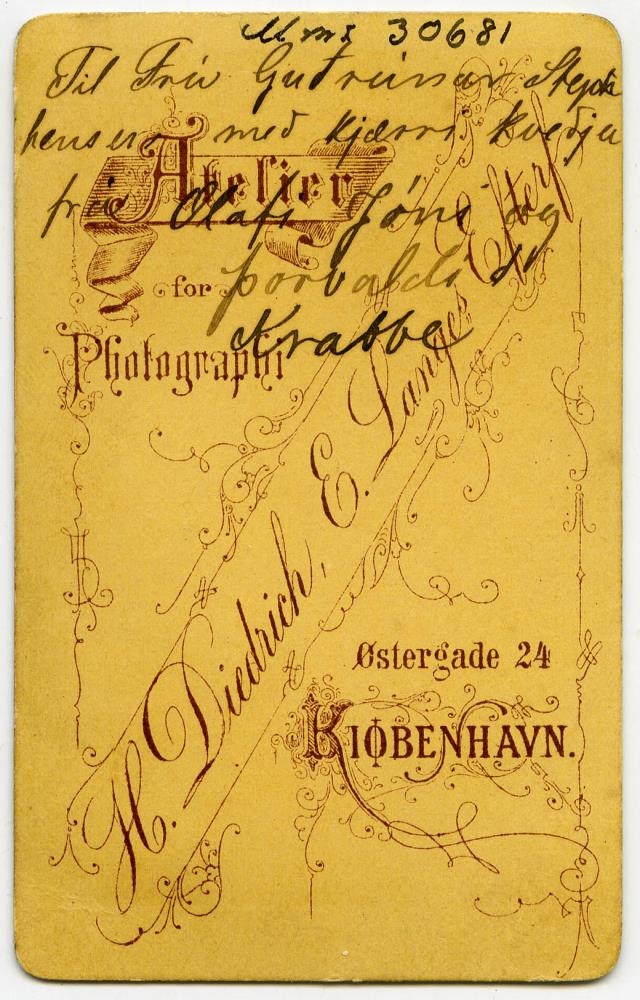 Mms 30681
Til Frú Guðrúnar Steph
hensen með kjærri kveðju
frá Ólafi Jóni og
Þorvaldi
Krabbe
Atelier
for
Photographi
H. Diedrich, E. Langes Efterf
Østergade 24
KIØBENHAVN.